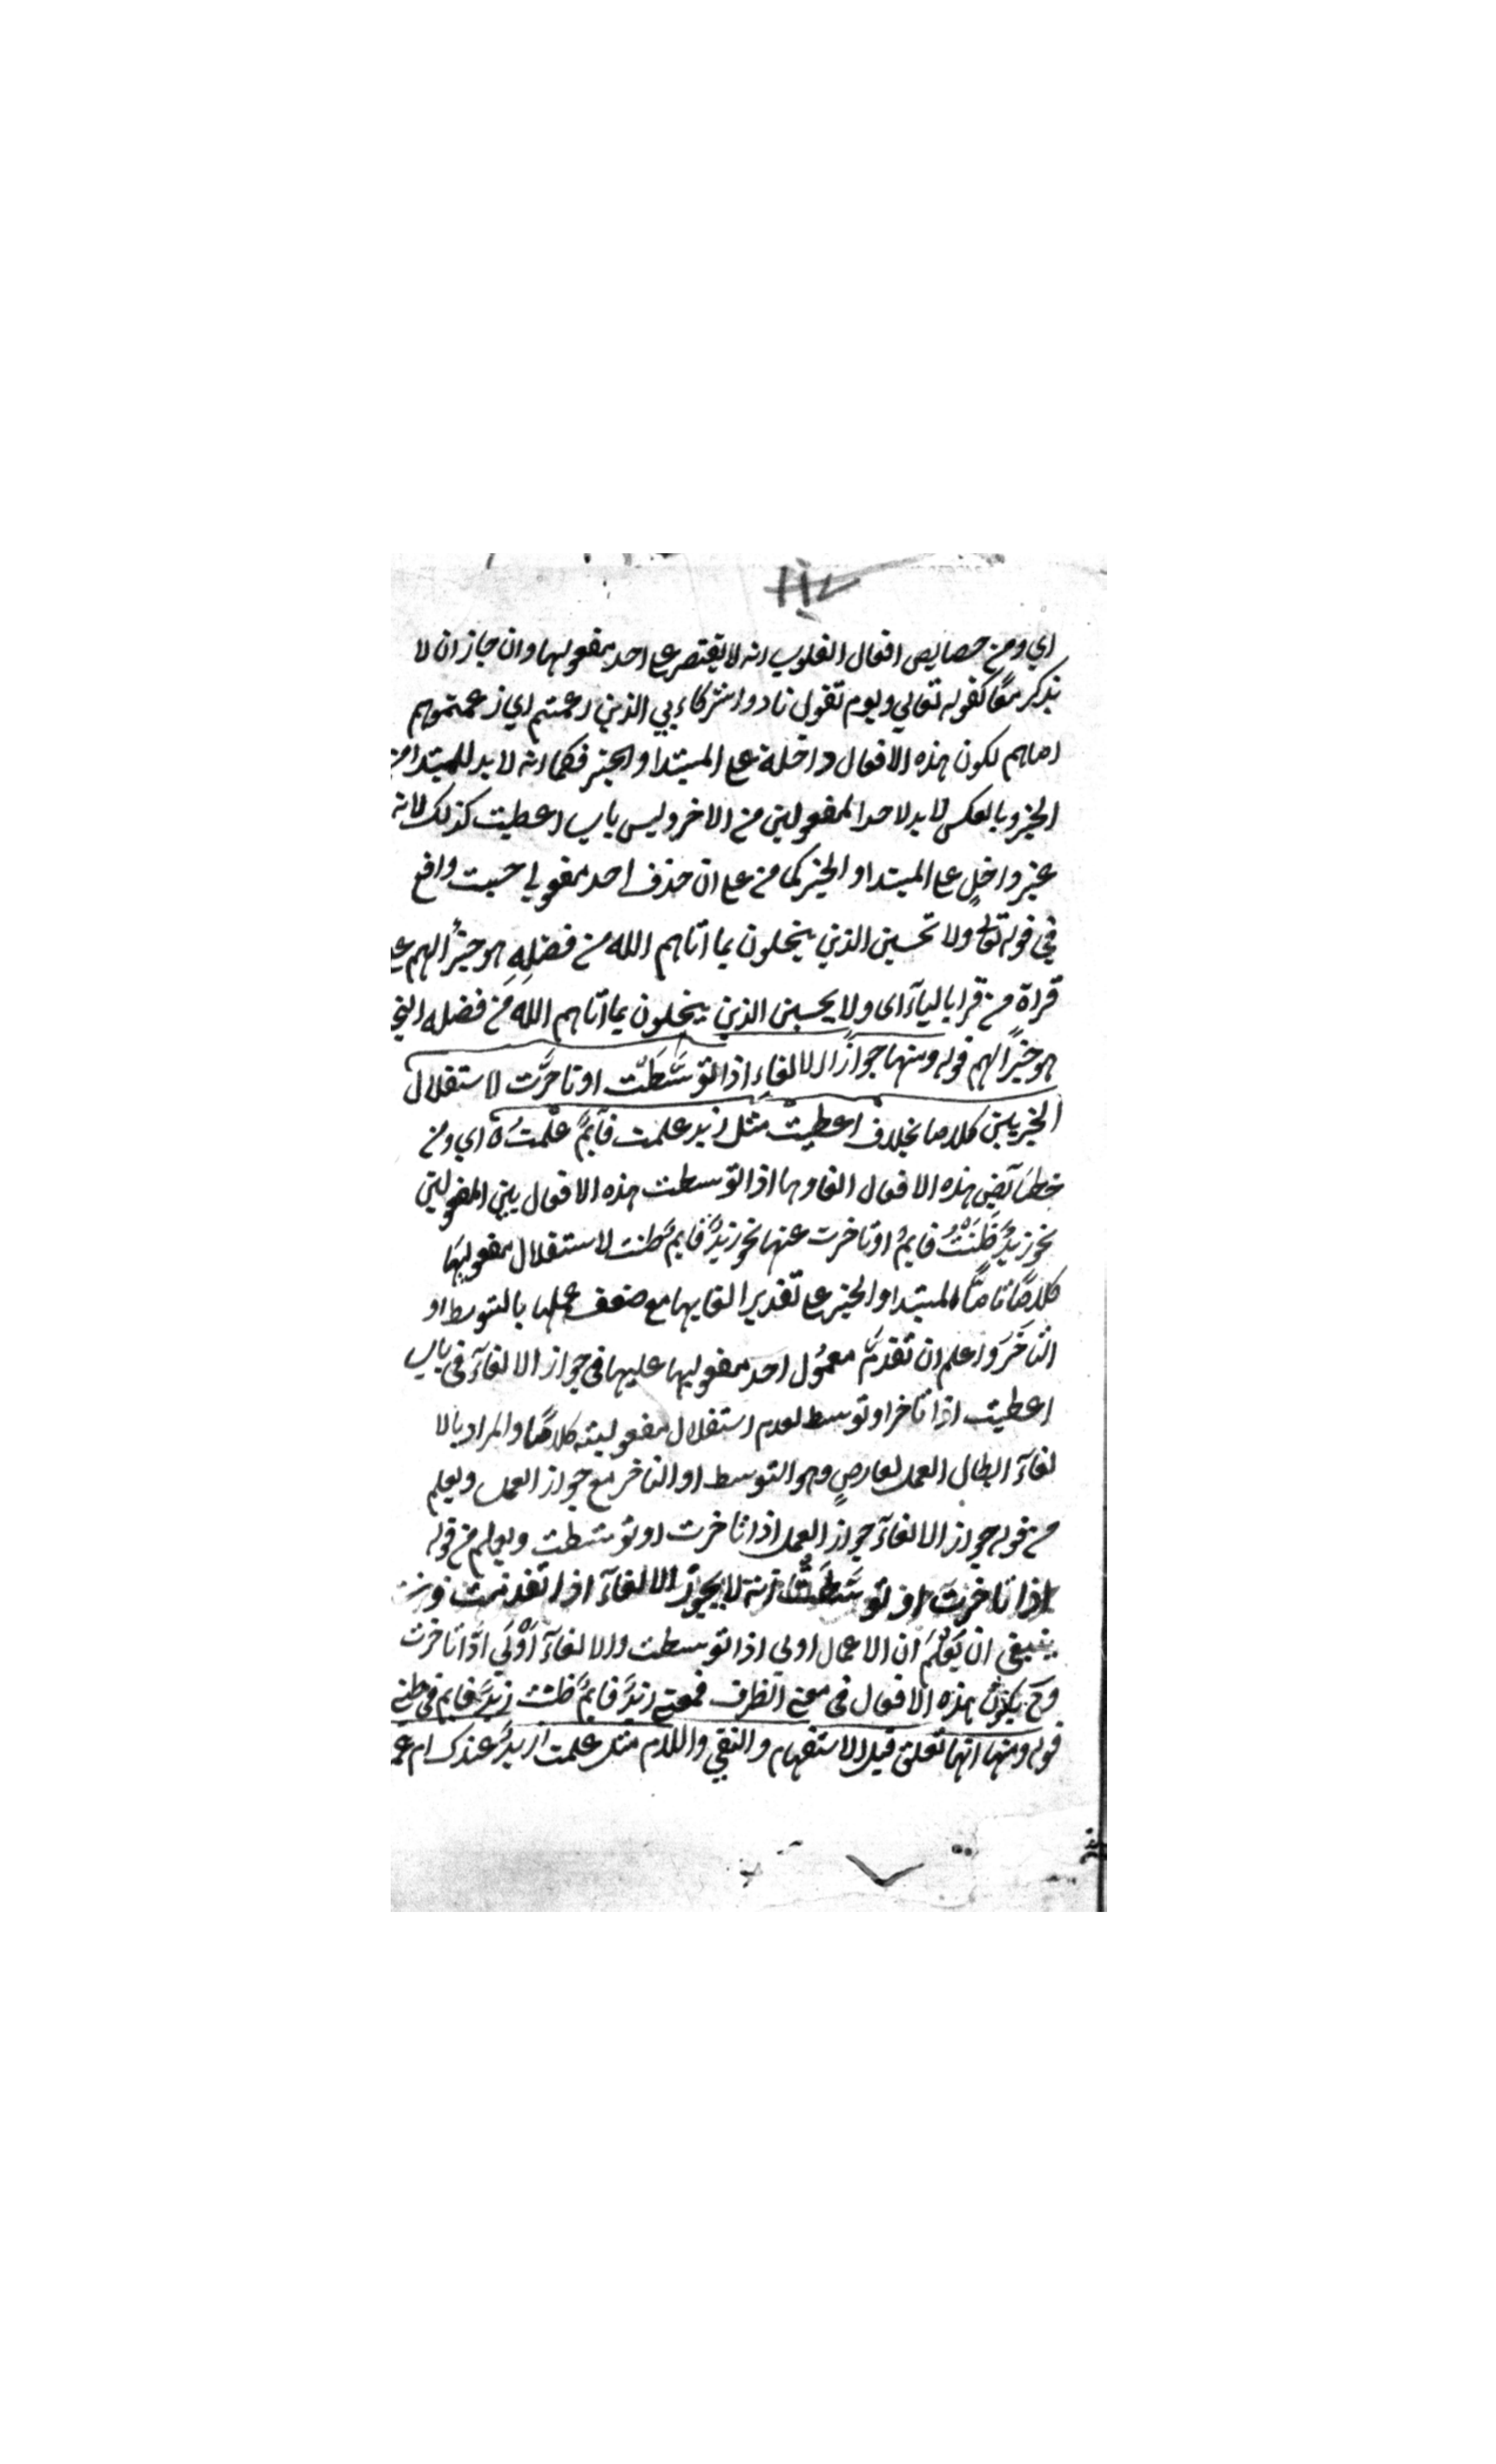 اي ومن خصايص افعال القلوب انه لا يقتصر على احد مفعوليها وان جاز ان لا
يذكر معًا كقوله تعالي ويوم تقول نادوا شركاءيي الذين زعمتم اي زعمتموهم
اياهم لكون هذه الافعال داخلة على المبتدا والخبر فكما انه لا بد للمبتدا من
الخبر وبالعكس لا بد لاحد المفعولين من الاخر وليس باب اعطيت كذلك لانه
غير داخلٍ على المبتدا والخبر كما مر على ان حذف احد مفعولي حسبت واقع
في قوله تعالى ولا تحسبن الذين يبخلون بما اتاهم الله من فضلِهِ هو خيرًا لهم على
قراة من قرا بالياء اى ولا يحسبن الذين يبخلون بما اتاهم الله من فضله البخل
هو خيرًا لهم قوله ومنها جواز الالغاءِ اذا توسَّطَتْ او تاخرَّت لاستقلال
الخبرين كلاما بخلاف اعطيتُ مثل زيد علمت قايمٌ علمتُ ه اي ومن
خصَايَص هذه الافعال الغاوها اذا توسطت هذه الافعال بين المفعولين
نحو زيدٌ ظَنَنْتُ قايمٌ او تاخرت عنها نحو زيدٌ قايمٌ ظننت لاستقلال مفعوليهَا
كلامًا تامًّا المبتدا والخبر على تقدير الغايها مع ضعف عملها بالتوسط او
التاخَر واعلم ان تقدمَّ معمُول احد مفعوليها عليها فى جواز الالغآء فى باب
اعطيت اذا تاخر او توسط لعدم استقلال مفعوليته كلامًا والمراد بالا
لغآء ابطال العمل لعارضٍ وهو التوسط او التاخر مع جواز العمل ويعلم
من قوله جواز الالغآء جواز العمل اذا تاخرت او توسّطت ويعلم من قوله
اذا تاخرت او توسَّطَتْ انه لا يجوز الالغآء اذا تقدمت
ينبغى ان يَعْلَمَ ان الاعمال اولى اذا توسطت والالغآء اَوْلَي اذَا تاخرت
وح يكونُ هذه الافعال فى معنى الظرف فمعنى زيدٌ قايمٌ ظننت زيدٌ قايم فى ظنى
قوله ومنها انها تعلق قبل الاستفهام والنفي واللام مثل علمت ازيدٌ عندك ام عمرو